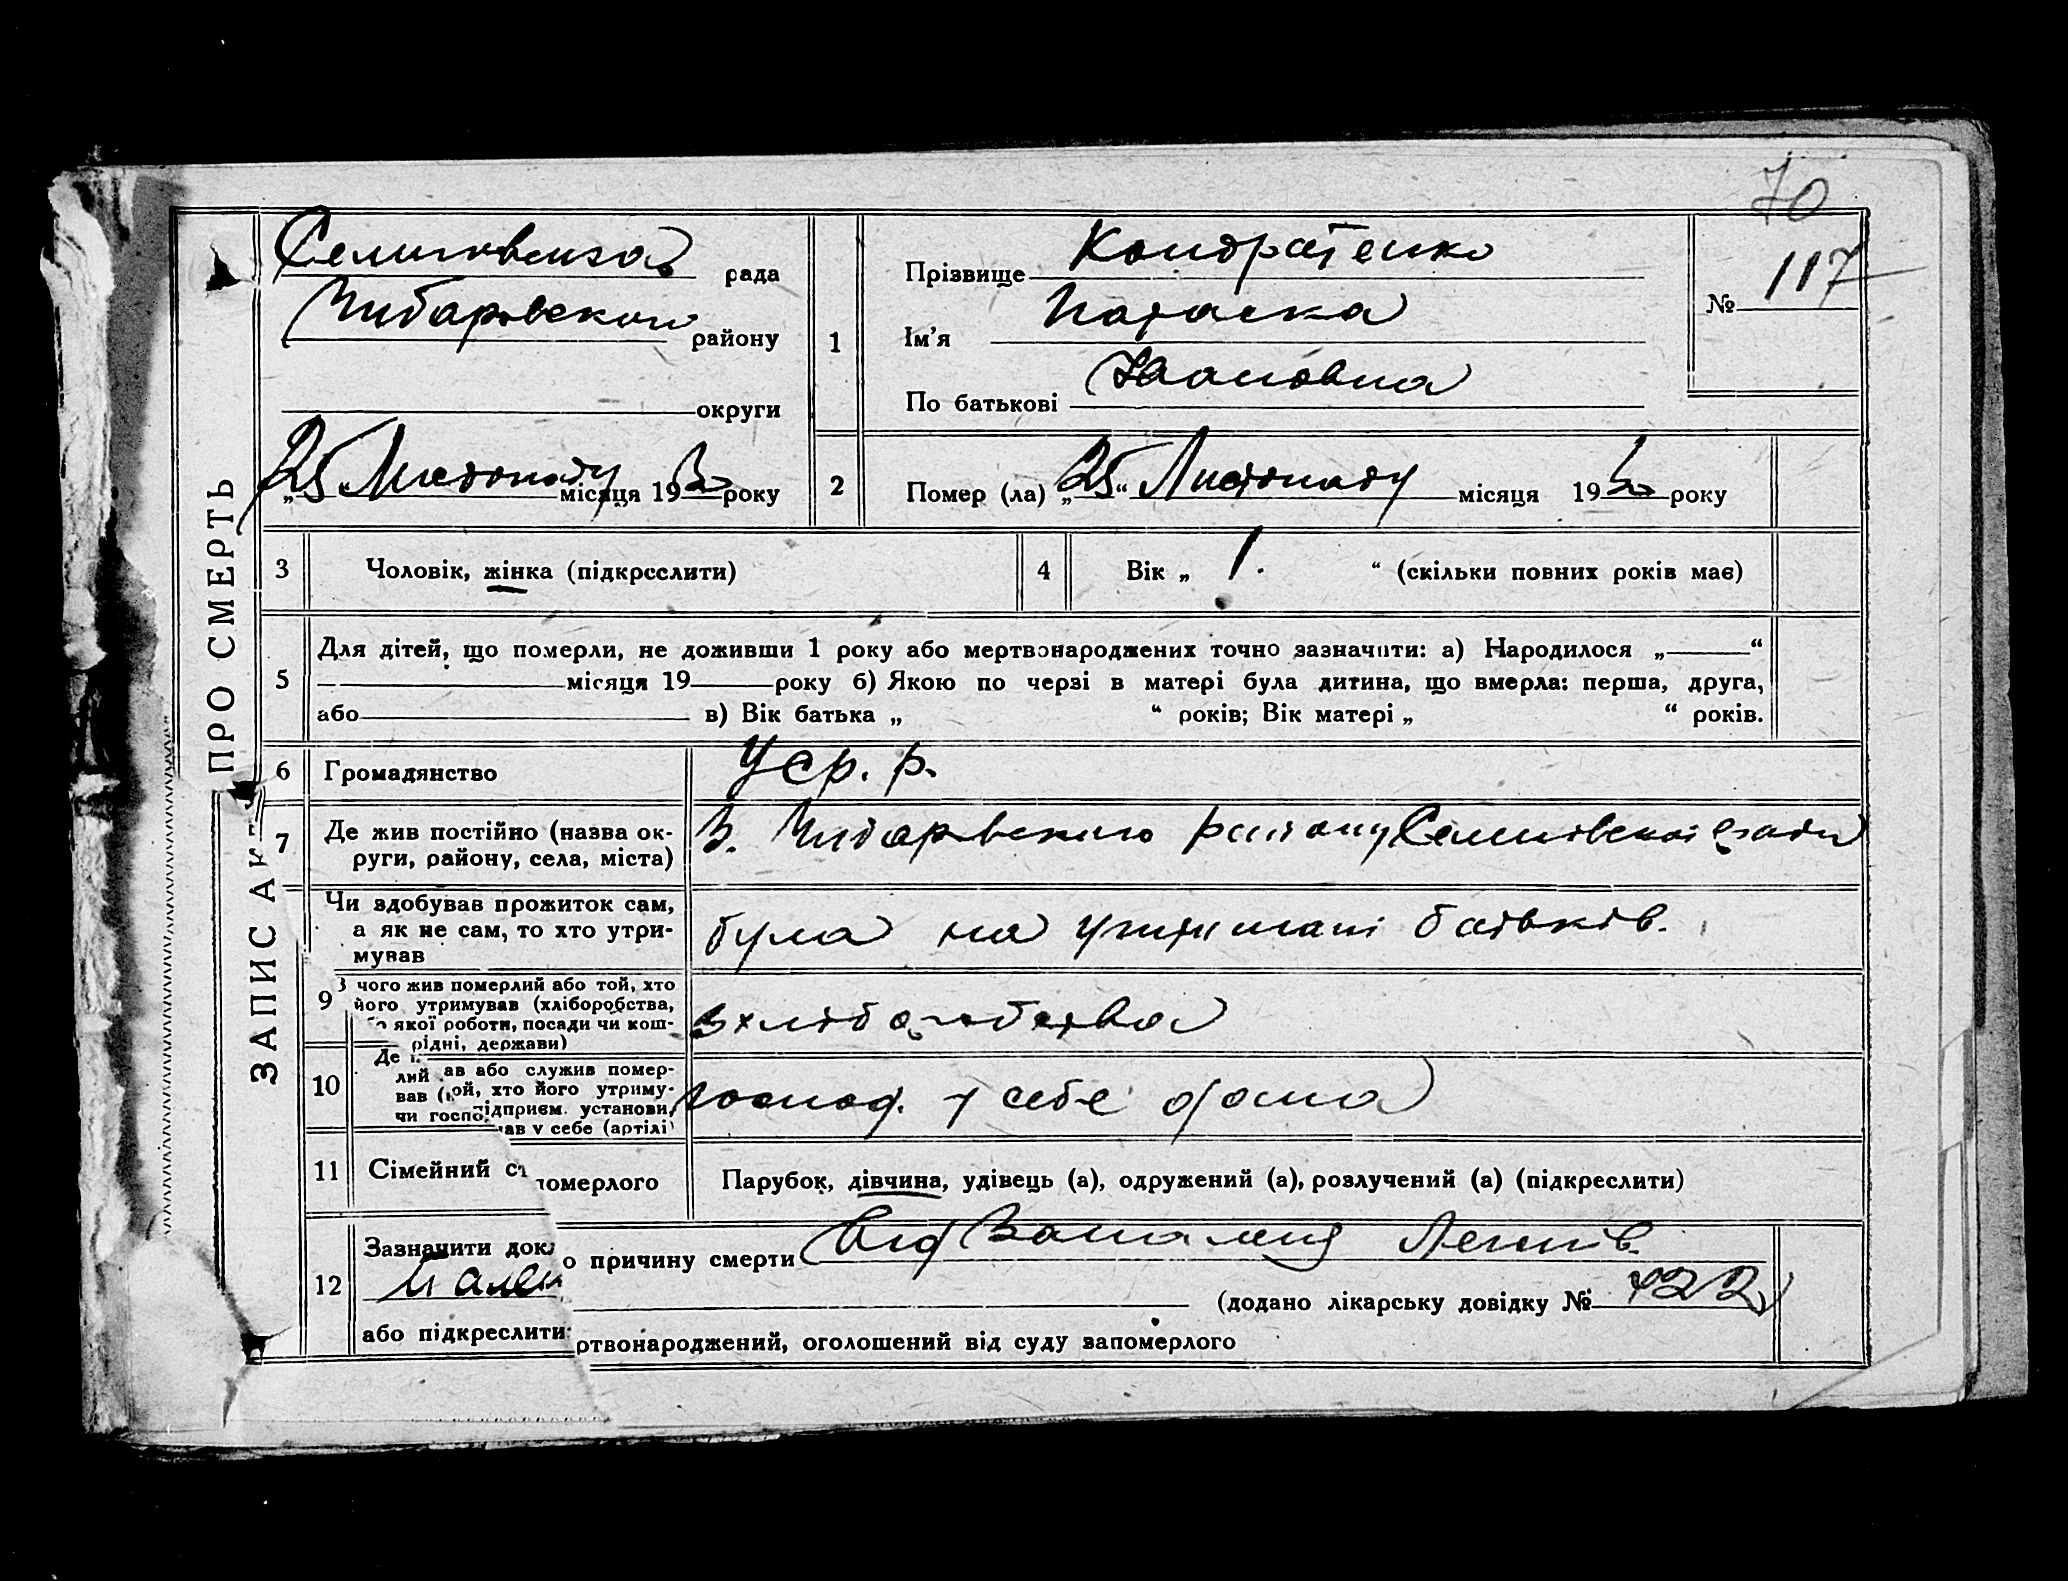 70
ЗАПИС АКТ ПРО СМЕРТЬ
рада
району
округи
25 Листопаду місяця 193 року
1
Прізвище Кондратенко
Ім'я
По батькові Івановна
№ 117
2
Помер (ла) „25“ Листопаду місяця 193 року
3
Чоловік, жінка (підкреслити)
4
Вік „ 1. “ (скільки повних років має)
5
Для дітей, що померли, не доживши 1 року або мертвонароджених точно зазначити: а) Народилося „ “
місяця 19 року б) Якою по черзі в матері була дитина, що вмерла: перша, друга,
або в) Вік батька „ “ років; Вік матері „ “ років.
6
Громадянство
Уср. р.
7
Де жив постійно (назва ок-
руги, району, села, міста)
району
Чи здобував прожиток сам,
а як не сам, то хто утри-
мував
була на утримані батьків.
9
З чого жив померлий або той, хто
його утримував (хліборобства,
якої роботи, посади чи кош-
рідні, держави)
з хліборобства
10
Де
лий ав або служив помер-
вав ой, хто його утриму-
чи госпо ідприєм. установи,
ав у себе (артілі)
господ. у себе дома
11
Сімейний ст померлого
Парубок, дівчина, удівець (а), одружений (а), розлучений (а) (підкреслити)
12
Зазначити докл о причину смерти Від Воспаления Легких
(додано лікарську довідку № 422)
або підкреслити: ртвонароджений, оголошений від суду запомерлого